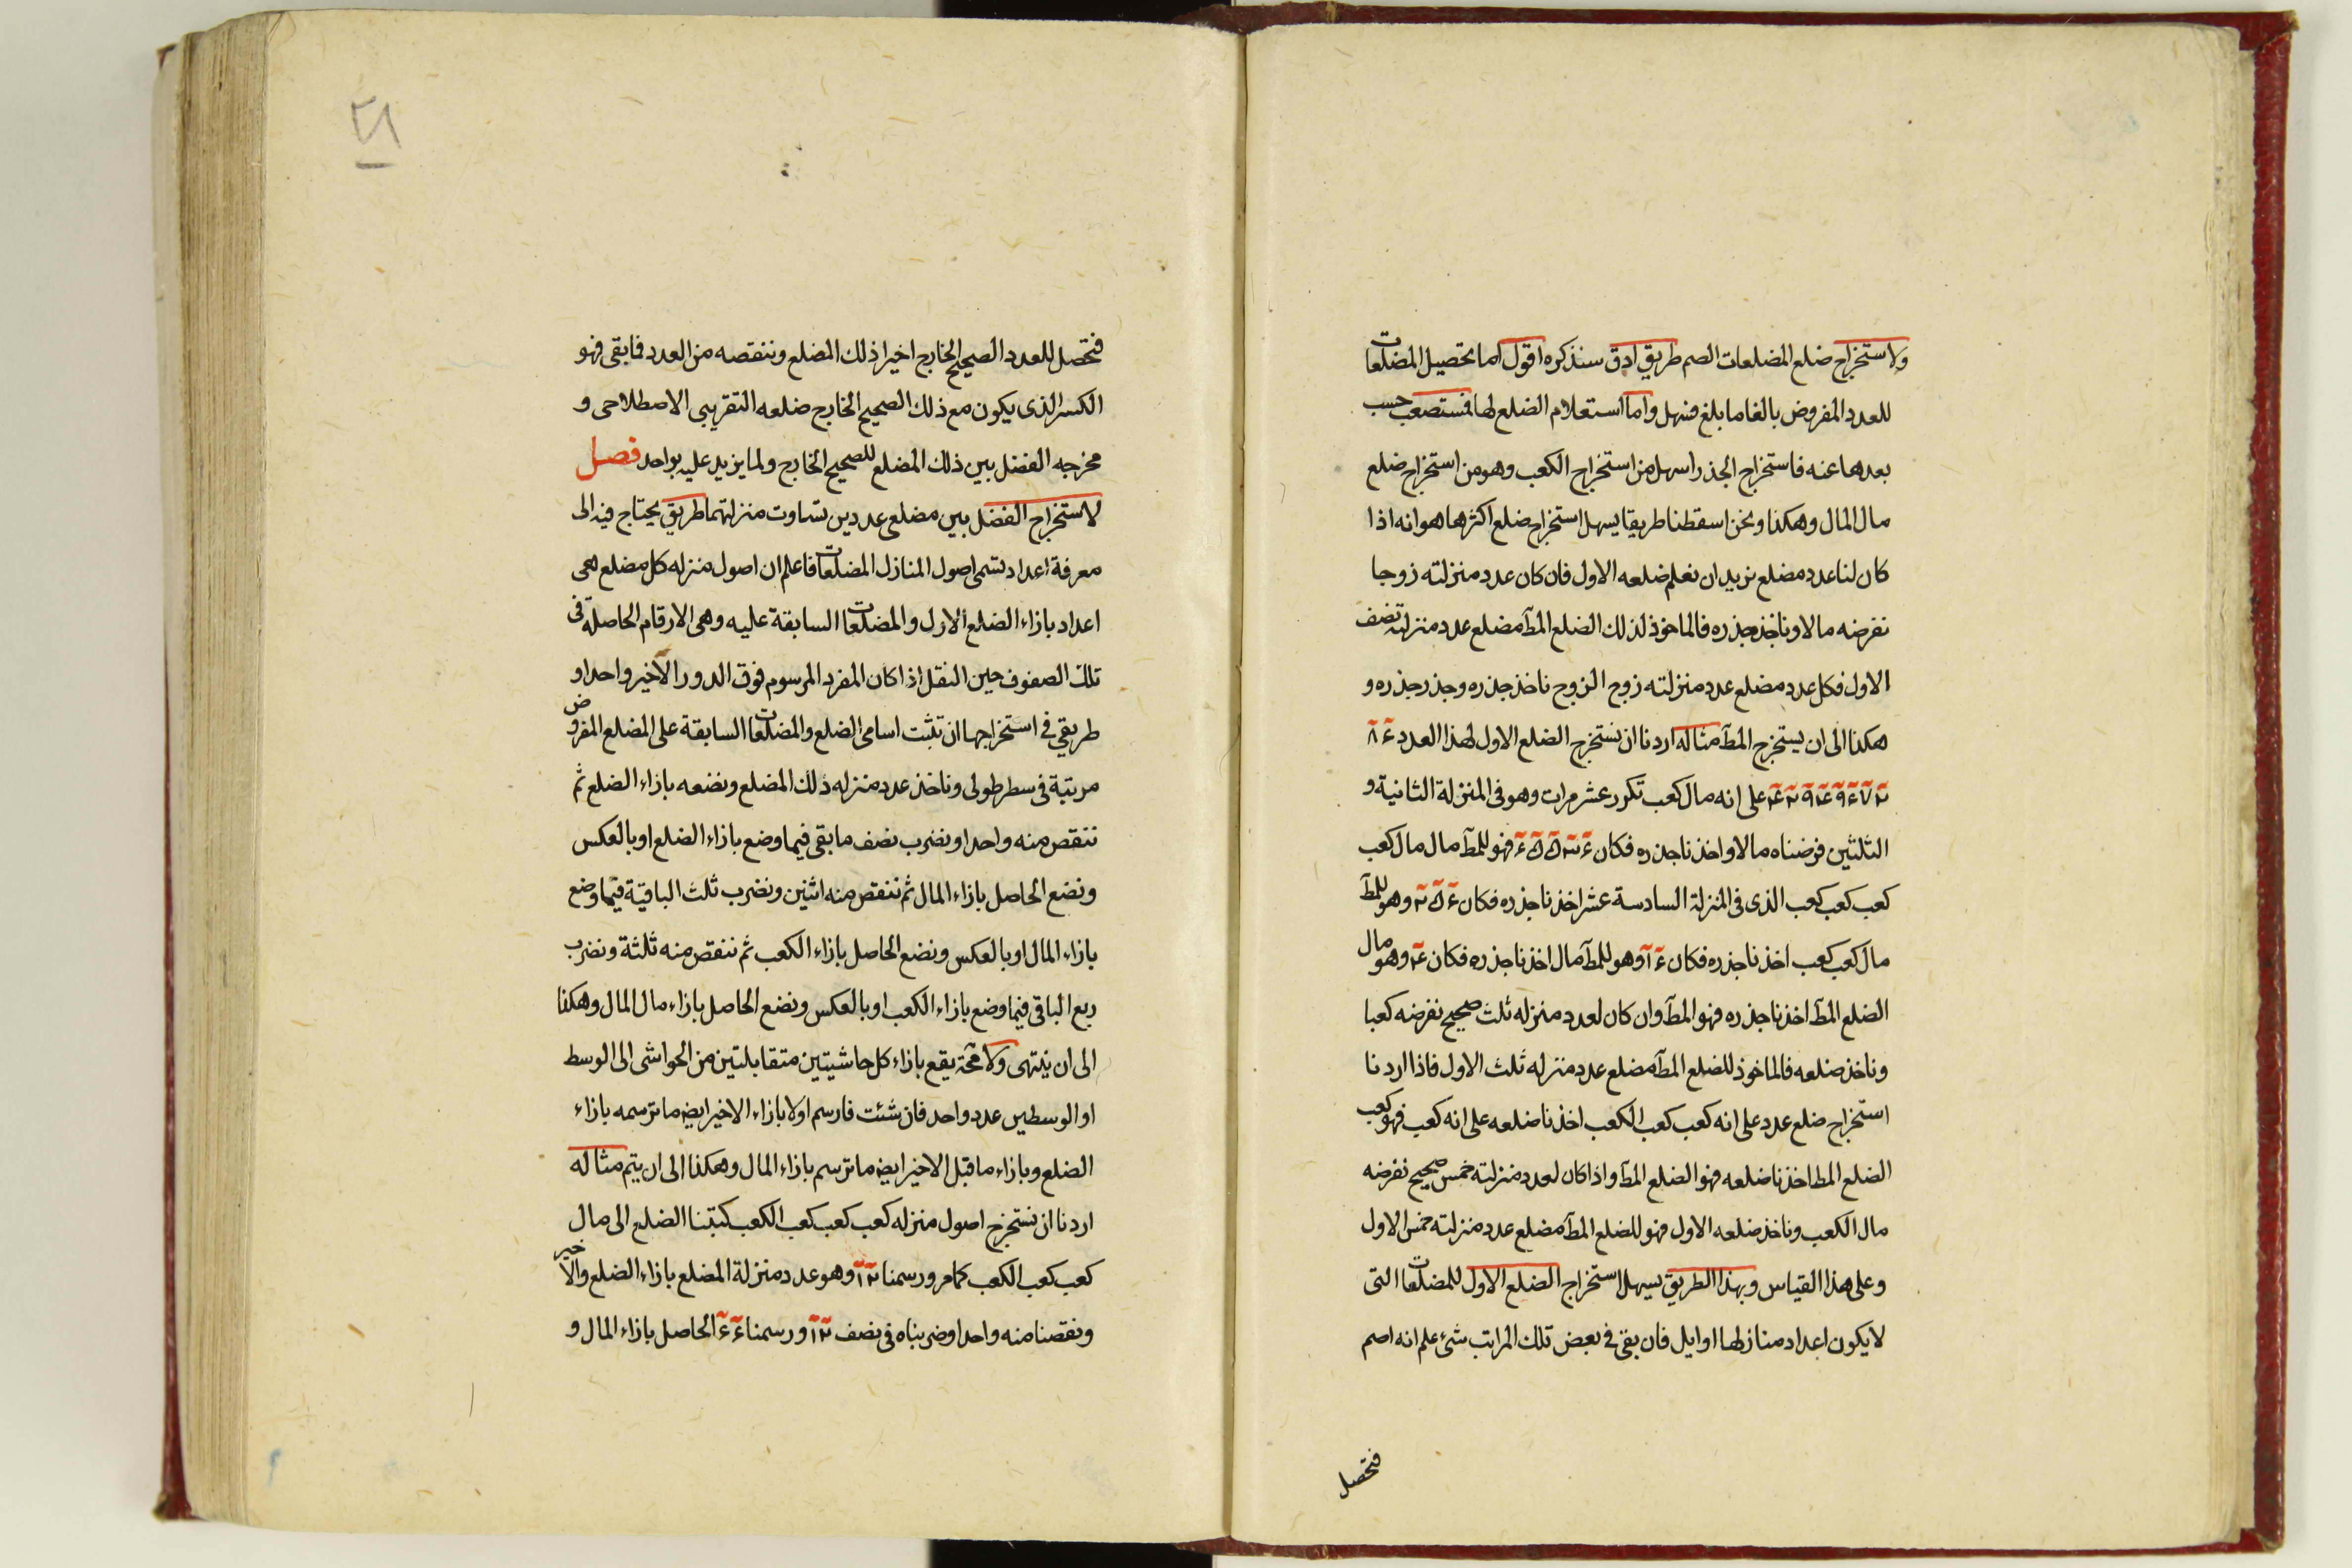 ولاستخراج ضلع المضلعات الصم طريق ادق سنذكره اقول اما تحصيل المضلعات
للعدد المفروض بالغا ما بلغ فسهل واما استعلام الضلع لها فمستصعب حسب
بعدها عنه فاستخراج الجذر اسهل من استخراج الكعب وهو من استخراج ضلع
مال المال وهكذا ونحن اسقطنا طريقا يسهل استخراج ضلع اكثرها هو انه اذا
كان لنا عدد مضلع نريد ان نعلم ضلعه الاول فان كان عدد منزلته زوجا
نفرضه مالا وناخذ جذره فالماخوذ لذلك الضلع المط مضلع عدد منزلته نصف
الاول فكل عدد مضلع عدد منزلته زوج الزوج ناخذ جذره وجذر جذره و
هكذا الى ان يستخرج المط مثاله اردنا ان نستخرج الضلع الاول لهذا العدد ۴۸
على انه مال كعب تكرر عشر مرات وهو فى المنزلة الثانية و
الثلثين فرضناه مالا واخذنا جذره فكان فهو للمط مال مال كعب
كعب كعب كعب الذى فى المنزلة السادسة عشر اخذنا جذره فكان وهو للمط
مال كعب كعب اخذنا جذره فكان وهو للمط مال اخذنا جذره فكان وهو مال
الضلع المط اخذنا جذره فهو المط وان كان لعدد منزله ثلث صحيح نفرضه كعبا
وناخذ ضلعه فالماخوذ للضلع المط مضلع عدد منزله ثلث الاول فاذا اردنا
استخراج ضلع عدد على انه كعب كعب الكعب اخذنا ضلعه على انه كعب فهو كعب
الضلع المط اخذنا ضلعه فهو الضلع المط واذا كان لعدد منزلته خمس صحيح نفرضه
مال الكعب وناخذ ضلعه الاول فهو للضلع المط مضلع عدد منزلته خمس الاول
وعلى هذا القياس وبهذا الطريق يسهل استخراج الضلع الاول للمضلعات التى
لا يكون اعداد منازلها اوايل فان بقى فى بعض تلك المراتب شئ علم انه اصم
فنحصل
۲۱
فنحصل للعدد الصحيح الخارج اخيرا ذلك المضلع وننقصه من العدد فما بقى فهو
الكسر الذى يكون مع ذلك الصحيح الخارج ضلعه التقريبى الاصطلاحى و
مخرجه الفضل بين ذلك المضلع للصحيح الخارج ولما يزيد عليه بواحد فصل
لاستخراج الفضل بين مضلعى عددين تساوت منزلتهما طريق يحتاج فيه الى
معرفة اعداد تسمى اصول المنازل المضلعات فاعلم ان اصول منزله كل مضلع هى
اعداد بازاء الضلع الاول والمضلعات السابقة عليه وهى الارقام الحاصلة فى
تلك الصفوف حين النقل اذا كان المفرد المرسوم فوق الدور الاخير واحدا و
طريقى فى استخراجها ان تثبت اسامى الضلع والمضلعات السابقة على المضلع المفروض
مرتبة فى سطر طولى وناخذ عدد منزله ذلك المضلع ونضعه بازاء الضلع ثم
ننقص منه واحدا ونضرب نصف ما بقى فيما وضع بازاء الضلع او بالعكس
ونضع الحاصل بازاء المال ثم ننقص منه اثنين ونضرب ثلث الباقية فيما وضع
بازاء المال او بالعكس ونضع الحاصل بازاء الكعب ثم ننقص منه ثلثة ونضرب
ربع الباقى فيما وضع بازاء الكعب او بالعكس ونضع الحاصل بازاء مال المال وهكذا
الى ان ينتهى ولا محة يقع بازاء كل حاشيتين متقابلتين من الحواشى الى الوسط
او الوسطين عدد واحد فان شئت فارسم اولا بازاء الاخير ايض ما ترسمه بازاء
الضلع وبازاء ما قبل الاخير ايض ما ترسم بازاء المال وهكذا الى ان يتم مثاله
اردنا ان نستخرج اصول منزله كعب كعب كعب الكعب كتبنا الضلع الى مال
كعب كعب الكعب كما مر ورسمنا ۱۲ وهو عدد منزلة المضلع بازاء الضلع والاخير
ونقصنا منه واحدا وضربناه فى نصف ۱۲ ورسمنا ۶۶ الحاصل بازاء المال و